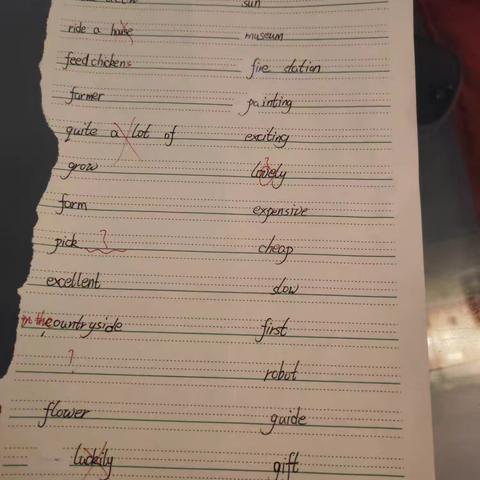 sun
ride a house
museum
feed chickens
fire dation
farmer
painting
quite a lot of
exciting
grow
lovely
farm
expensive
pick ?
cheap
excellent
slow
in the countryside
first
?
robot
flower
guide
luckily
gift